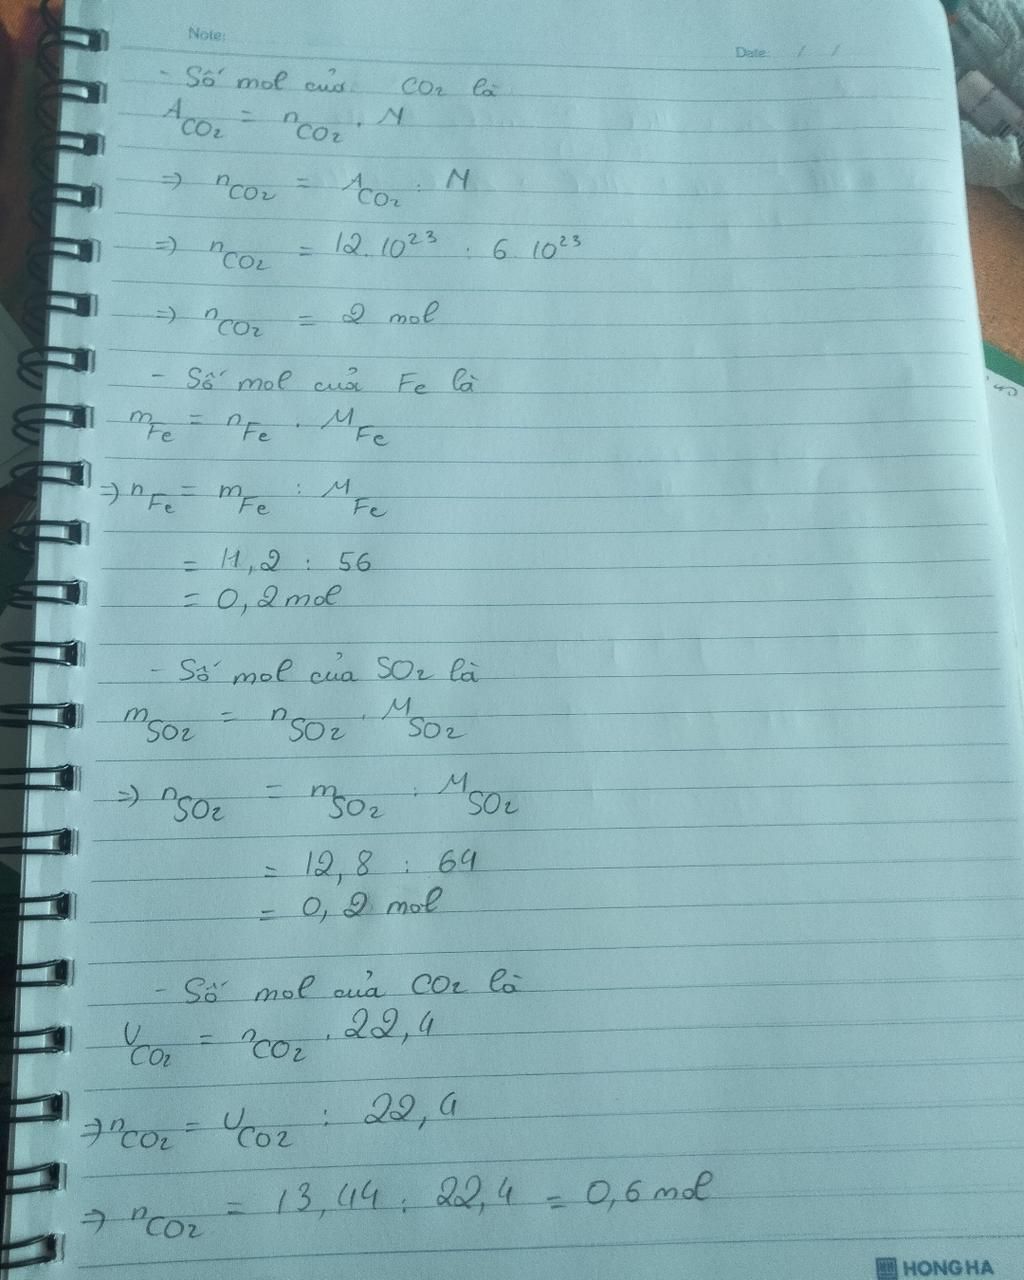 Note:
Date: / /
- Số mol của CO₂ là
A_CO₂ = n_CO₂ . N
=> n_CO₂ = A_CO₂ : N
=> n_CO₂ = 12.10²³ : 6.10²³
=> n_CO₂ = 2 mol
- Số mol của Fe là
m_Fe = n_Fe . M_Fe
=> n_Fe = m_Fe : M_Fe
= 11,2 : 56
= 0,2 mol
- Số mol của SO₂ là
m_SO₂ = n_SO₂ . M_SO₂
=> n_SO₂ = m_SO₂ : M_SO₂
= 12,8 : 64
= 0,2 mol
- Số mol của CO₂ là
V_CO₂ = n_CO₂ . 22,4
=> n_CO₂ = V_CO₂ : 22,4
=> n_CO₂ = 13,44 : 22,4 = 0,6 mol
HONG HA